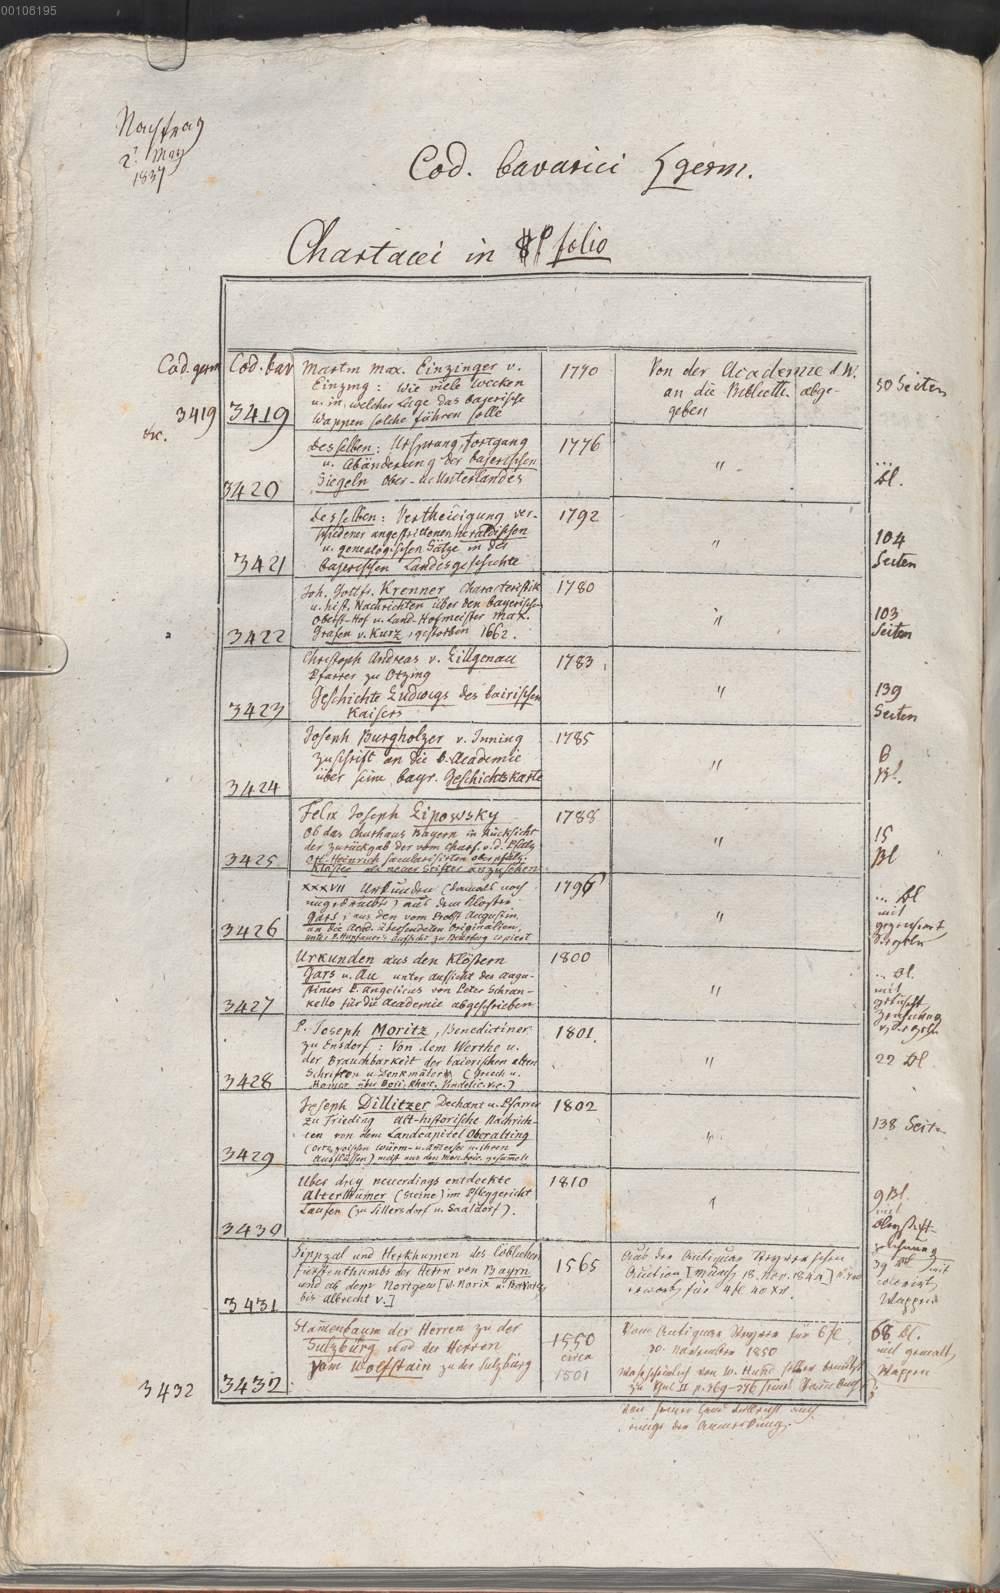 00108195
Nachtrag
2. May
1837
Cod. bavarici germ.
Chartacei in folio
Cod. germ
3419
etc.
Cod. bav
3419
Martin Max. Einzinger v.
Einzing: Wie viele Wecken
u. in welcher Lage das bajerische
Wappen solche führen solle
1770
Von der Academie d. W.
an die Biblioth. abge-
geben
50 Seiten
3420
Desselben: Ursprung, Fortgang
u. Abänderung der bajerischen
Siegeln Ober- u. Unterlandes
1776
"
... Bl.
3421
Desselben: Vertheidigung ver-
schiedener angestrittenen heraldischen
u. genealogischen Sätze in der
bajerischen Landesgeschichte
1792
"
104
Seiten
3422
Joh. Gottfr. Krenner Characteristik
u. hist. Nachrichten über den bayerisch.
Oberst-Hof u. Land-Hofmeister Max.
Grafen v. Kurz, gestorben 1662.
1780
"
103
Seiten
3423
Christoph Andreas v. Lillgenau
Pfarrer zu Otzing
Geschichte Ludwigs des bairischen
Kaisers
1783
"
139
Seiten
3424
Joseph Burgholzer v. Inning
Zuschrift an die b. Academie
über seine bayr. Geschichtskarte
1785
"
6
Bl.
3425
Felix Joseph Lipowsky
Ob das Churhaus Bayern in Rücksicht
der Zurückgab der vom Churf. v. d. Pfalz
Ott-Heinrich saecularisirten oberpfälz.
Klöster als neuer Stifter anzusehen
1788
"
15
Bl
3426
XXXVII Urkunden (damals noch
ungedruckt) aus dem Kloster
Gars, aus den vom Probst Augustin
an die Acad. übersendeten Originalien,
1796
"
... Bl
mit
3427
Urkunden aus den Klöstern
Gars u. Au unter Aufsicht des Augu-
stiners P. Angelicus von Peter Schran-
kello für die Academie abgeschrieben
1800
"
... Bl.
mit
3428
P. Joseph Moritz, Benedictiner
zu Ensdorf: Von dem Werthe u.
der Brauchbarkeit der baierischen alten
Schriften u. Denkmälern (Griech u.
1801.
"
22 Bl
3429
Joseph Dillitzer Dechant u. Pfarrer
zu Frieding alt-historische Nachrich-
ten von dem Landcapitel Oberalting
1802
"
138 Seiten
3430
Über drey neuerdings entdeckte
Alterthümer (Steine) im Pfleggericht
Laufen (zu Tillersdorf u. Saaldorf).
1810
"
9 Bl.
mit
3431
Sippzal und Herkhumen des löblichen
Fürstenthumbs der Herrn von Bayrn
und ab dem Nortgew
bis Albrecht V.]
1565
Aus der Antiquar
Auction [Münch. 18. Nov.
39 Bl mit
colorirt.
Wappen
3432
3432
Stammenbaum der Herren zu der
Sulzburg und der Herren
vom Wolfstain zu der Sulzbürg
1550
circa
1501
Vom Antiquar für 6 fl.
20. November 1850
Wahrscheinlich von W. Hund selber benützt
zu Thl. II p. 369-376
68 Bl.
mit gemalt.
Wappen